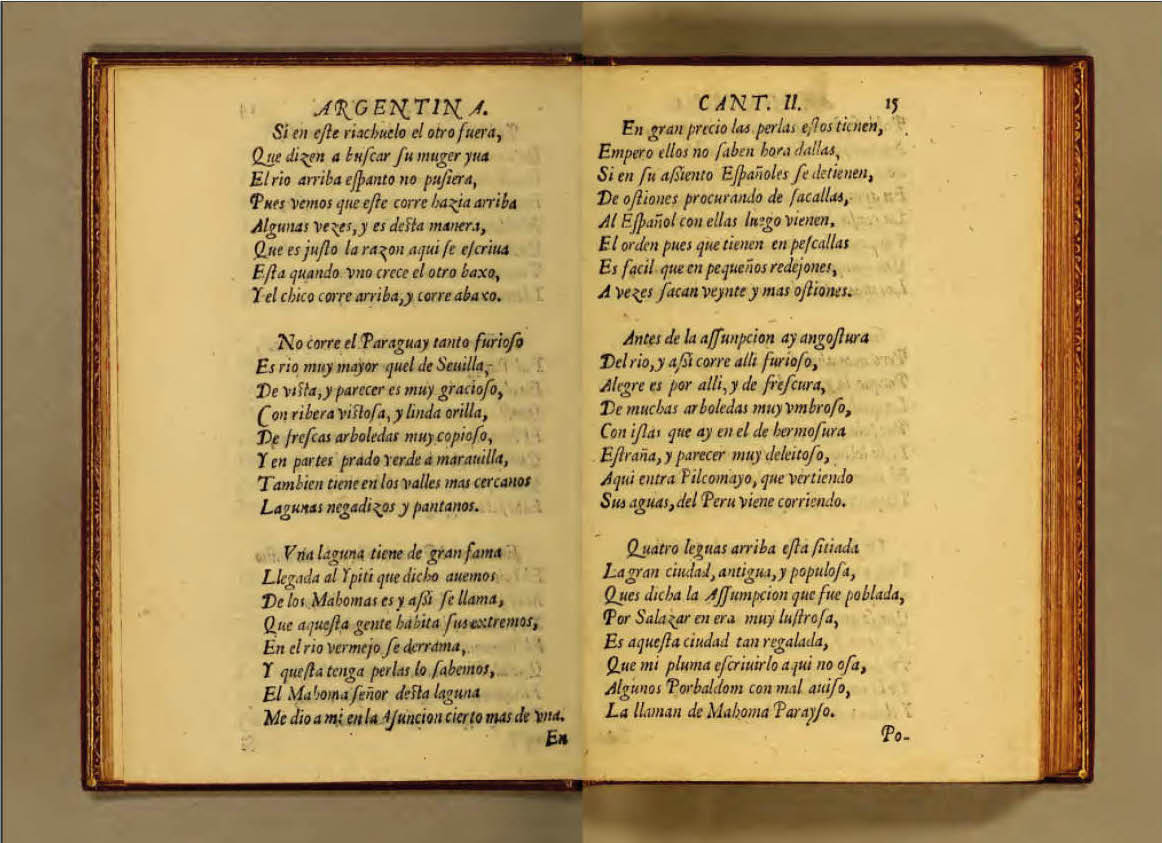 ARGENTINA.
Si en eſte riachuelo el otro fuera,
Que dizen a buſcar ſu muger yua
El rio arriba eſpanto no puſiera,
Pues vemos que eſte corre hazia arriba
Algunas vezes, y es deſta manera,
Que es juſto la razon aqui ſe eſcriua
Eſta quando vno crece el otro baxo,
Y el chico corre arriba, y corre abaxo.
No corre el Paraguay tanto furioſo
Es rio muy mayor quel de Seuilla,
De viſta, y parecer es muy gracioſo,
Con ribera viſtoſa, y linda orilla,
De freſcas arboledas muy copioſo,
Y en partes prado verde a marauilla,
Tambien tiene en los valles mas cercanos
Lagunas negadizos y pantanos.
Vna laguna tiene de gran fama
Llegada al Ypiti que dicho auemos
De los Mahomas es y aſsi ſe llama,
Que aqueſta gente habita ſus extremos,
En el rio vermejo ſe derrama,
Y queſta tenga perlas lo ſabemos,
El Mahoma ſeñor deſta laguna
Me dio a mi en la Aſuncion cierto mas de vna.
En
CANT. II. 15
En gran precio las perlas eſtos tienen,
Empero ellos no ſaben hora dallas,
Si en ſu aſsiento Eſpañoles ſe detienen,
De oſtiones procurando de ſacallas,
Al Eſpañol con ellas luego vienen.
El orden pues que tienen en peſcallas
Es facil que en pequeños redejones,
A vezes ſacan veynte y mas oſtiones.
Antes de la aſſunpcion ay angoſtura
Del rio, y aſsi corre alli furioſo,
Alegre es por alli, y de freſcura,
De muchas arboledas muy vmbroſo,
Con iſlas que ay en el de hermoſura
Eſtraña, y parecer muy deleitoſo,
Aqui entra Pilcomayo, que vertiendo
Sus aguas, del Peru viene corriendo.
Quatro leguas arriba eſta ſitiada
La gran ciudad, antigua, y populoſa,
Ques dicha la Aſſumpcion que fue poblada,
Por Salazar en era muy luſtroſa,
Es aqueſta ciudad tan regalada,
Que mi pluma eſcriuirlo aqui no oſa,
Algunos Porbaldom con mal auiſo,
La llaman de Mahoma Parayſo.
Po-